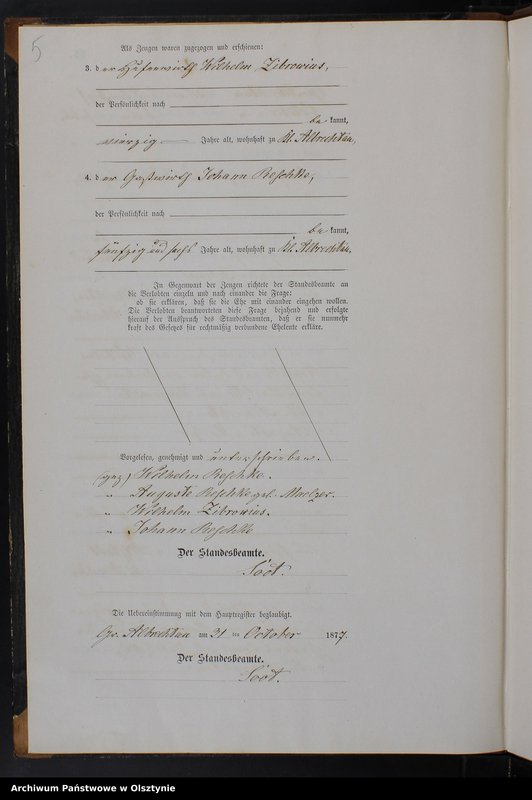 5
Als Zeugen waren zugezogen und erschienen:
3. der Hufenwirth Wilhelm Zibrowius,
der Persönlichkeit nach
bekannt,
vierzig Jahre alt, wohnhaft zu Kl. Albrechtau,
4. der Gastwirth Johann Reschke,
der Persönlichkeit nach
bekannt,
fünfzig und sechs Jahre alt, wohnhaft zu Kl. Albrechtau,
In Gegenwart der Zeugen richtete der Standesbeamte an
die Verlobten einzeln und nach einander die Frage:
ob sie erklären, daß sie die Ehe mit einander eingehen wollen.
Die Verlobten beantworteten diese Frage bejahend und erfolgte
hierauf der Ausspruch des Standesbeamten, daß er sie nunmehr
kraft des Gesetzes für rechtmäßig verbundene Eheleute erkläre.
Vorgelesen, genehmigt und unterschrieben.
(gez) Wilhelm Reschke.
" Auguste Reschke geb.
" Wilhelm Zibrowius.
" Johann Reschke
Der Standesbeamte.
Die Uebereinstimmung mit dem Hauptregister beglaubigt.
Gr. Albrechtau am 31 ten October 1877.
Der Standesbeamte.
Archiwum Państwowe w Olsztynie